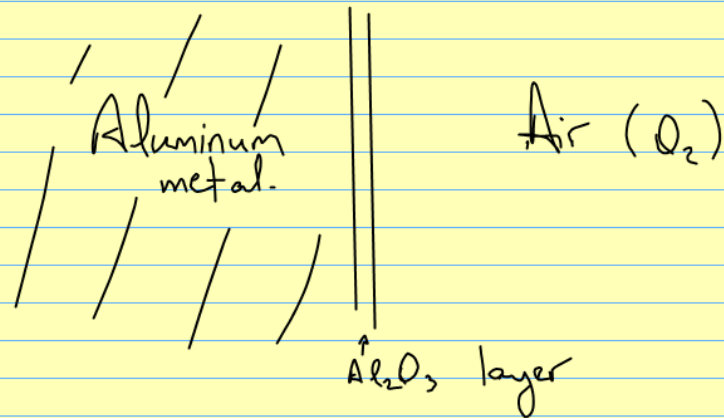 Aluminum
metal.
Air (O₂)
Al₂O₃ layer